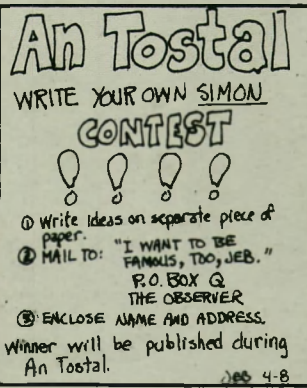 An Tostal
WRITE YOUR OWN SIMON
CONTEST
! ! ! !
① Write Ideas on separate piece of
paper.
② MAIL TO: "I WANT TO BE
FAMOUS, TOO, JEB."
P.O. BOX Q
THE OBSERVER
③ ENCLOSE NAME AND ADDRESS.
Winner will be published during
An Tostal.
Jeb 4-8